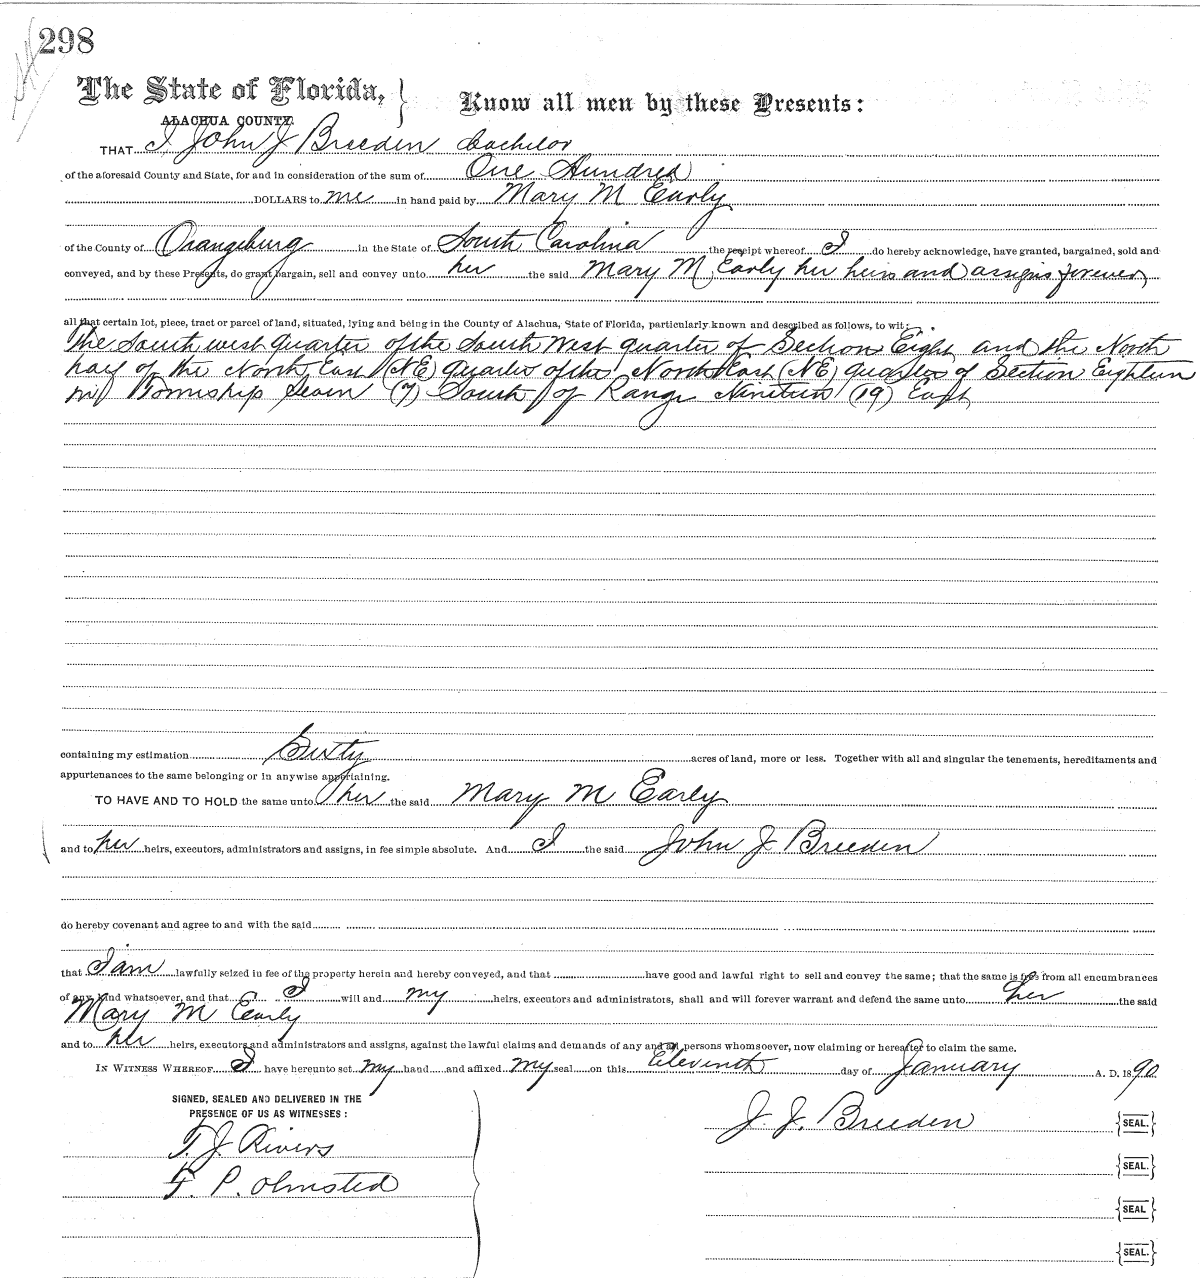 298
The State of Florida, } Know all men by these Presents:
ALACHUA COUNTY.
THAT I John J Breeden bachelor
of the aforesaid County and State, for and in consideration of the sum of One Hundred
DOLLARS to me in hand paid by Mary M Early
of the County of Orangeburg in the State of South Carolina the receipt whereof I do hereby acknowledge, have granted, bargained, sold and
conveyed, and by these Presents, do grant, bargain, sell and convey unto her the said Mary M Early her heirs and assigns forever
all that certain lot, piece, tract or parcel of land, situated, lying and being in the County of Alachua, State of Florida, particularly known and described as follows, to wit:
The South west quarter of the South West quarter of Section Eight and the North
half of the North East (NE) quarter of the North East (NE) quarter of Section Eighteen
in Township Seven (7) South of Range Nineteen (19) East
containing my estimation Sixty acres of land, more or less. Together with all and singular the tenements, hereditaments and
appurtenances to the same belonging or in anywise appertaining.
TO HAVE AND TO HOLD the same unto her the said Mary M Early
and to her heirs, executors, administrators and assigns, in fee simple absolute. And I the said John J Breeden
do hereby covenant and agree to and with the said
that I am lawfully seized in fee of the property herein and hereby conveyed, and that have good and lawful right to sell and convey the same; that the same is free from all encumbrances
of any kind whatsoever, and that I will and my heirs, executors and administrators, shall and will forever warrant and defend the same unto her the said
Mary M Early
and to her heirs, executors and administrators and assigns, against the lawful claims and demands of any and all persons whomsoever, now claiming or hereafter to claim the same.
IN WITNESS WHEREOF I have hereunto set my hand and affixed my seal on this Eleventh day of January A. D. 1890
SIGNED, SEALED AND DELIVERED IN THE
PRESENCE OF US AS WITNESSES:
J. J. Breeden {SEAL.}
T. J. Rivers
{SEAL.}
F. P. Olmsted
{SEAL}
{SEAL.}